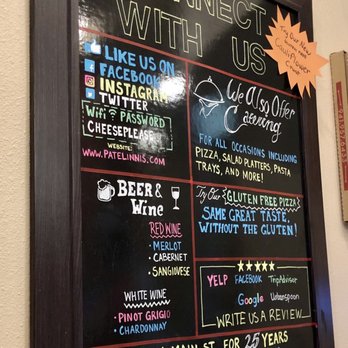 NNECT
WITH US
Try Our New
Cauliflower
Crust
LIKE US ON
FACEBOOK
INSTAGRAM
TWITTER
Wifi PASSWORD
CHEESEPLEASE
WEBSITE:
WWW.PATELINNIS.COM
We Also Offer
Catering
FOR ALL OCCASIONS INCLUDING
PIZZA, SALAD PLATTERS, PASTA
TRAYS, AND MORE!
BEER &
Wine
RED WINE
• MERLOT
• CABERNET
• SANGIOVESE
WHITE WINE
• PINOT GRIGIO
• CHARDONNAY
Try Our GLUTEN FREE PIZZA
SAME GREAT TASTE,
WITHOUT THE GLUTEN!
YELP FACEBOOK TripAdvisor
Google Urbanspoon
WRITE US A REVIEW
MAIN ST. FOR 25 YEARS